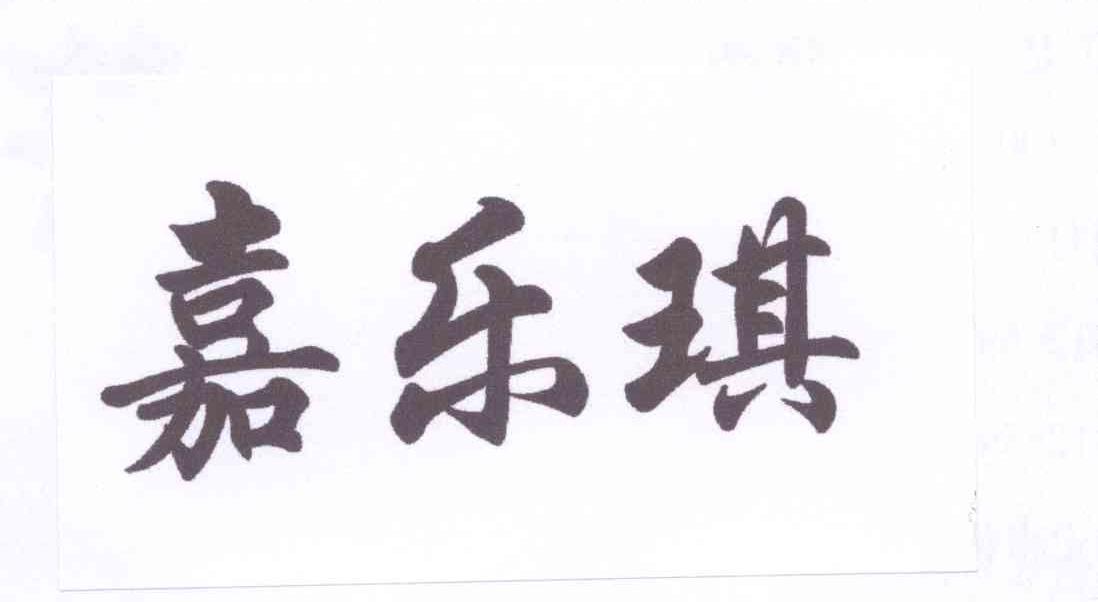 嘉乐琪